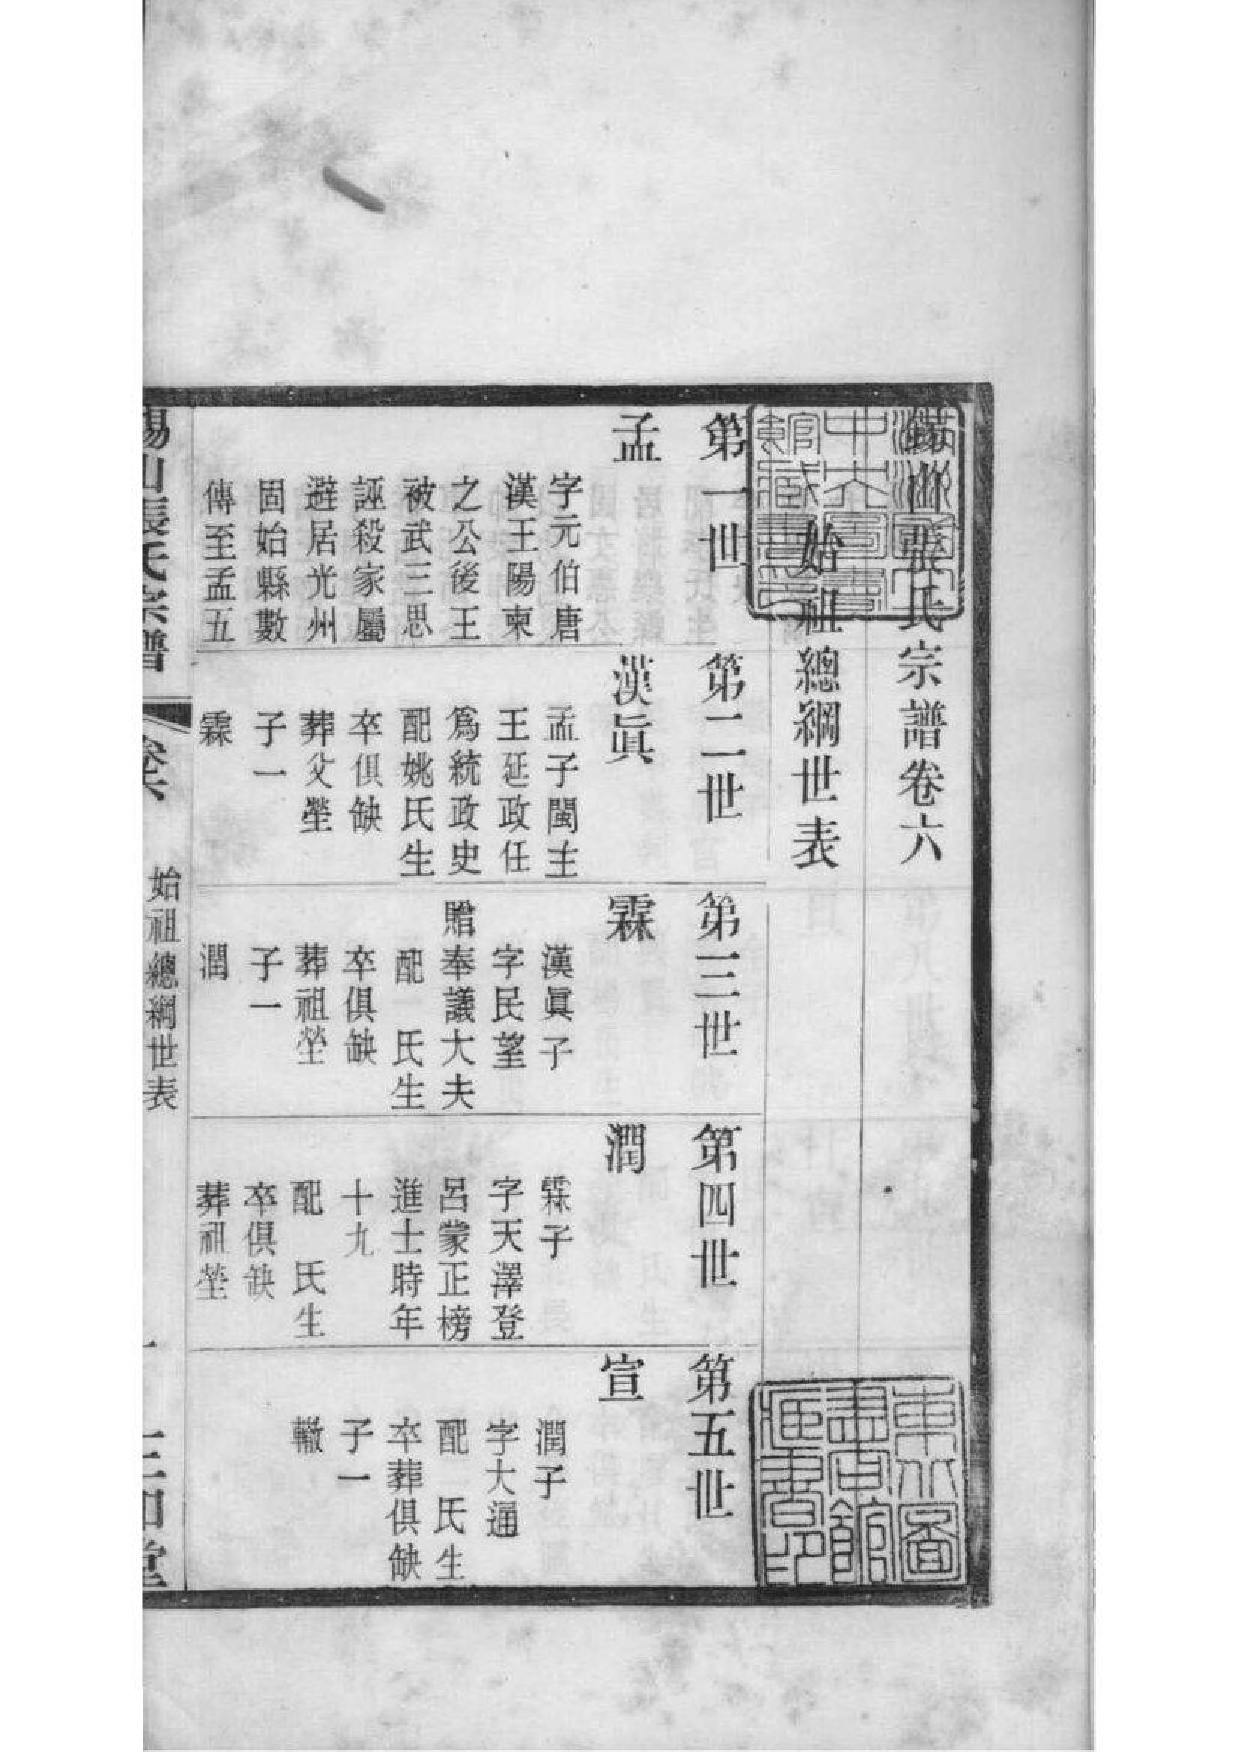 錫山張氏宗譜卷六
始祖總綱世表
第一世
孟
字元伯唐
漢王陽東
之公後王
被武三思
誣殺家屬
避居光州
固始縣數
傳至孟五
第二世
漢眞
孟子閩主
王延政任
爲統政史
配姚氏生
卒俱缺
葬父塋
子一
霖
第三世
霖
漢眞子
字民望
贈奉議大夫
配 氏生
卒俱缺
葬祖塋
子一
潤
第四世
潤
霖子
字天澤登
呂蒙正榜
進士時年
十九
配 氏生
卒俱缺
葬祖塋
第五世
宣
潤子
字大通
配 氏生
卒葬俱缺
子一
轍
錫山張氏宗譜
卷六
始祖總綱世表
一
三和堂